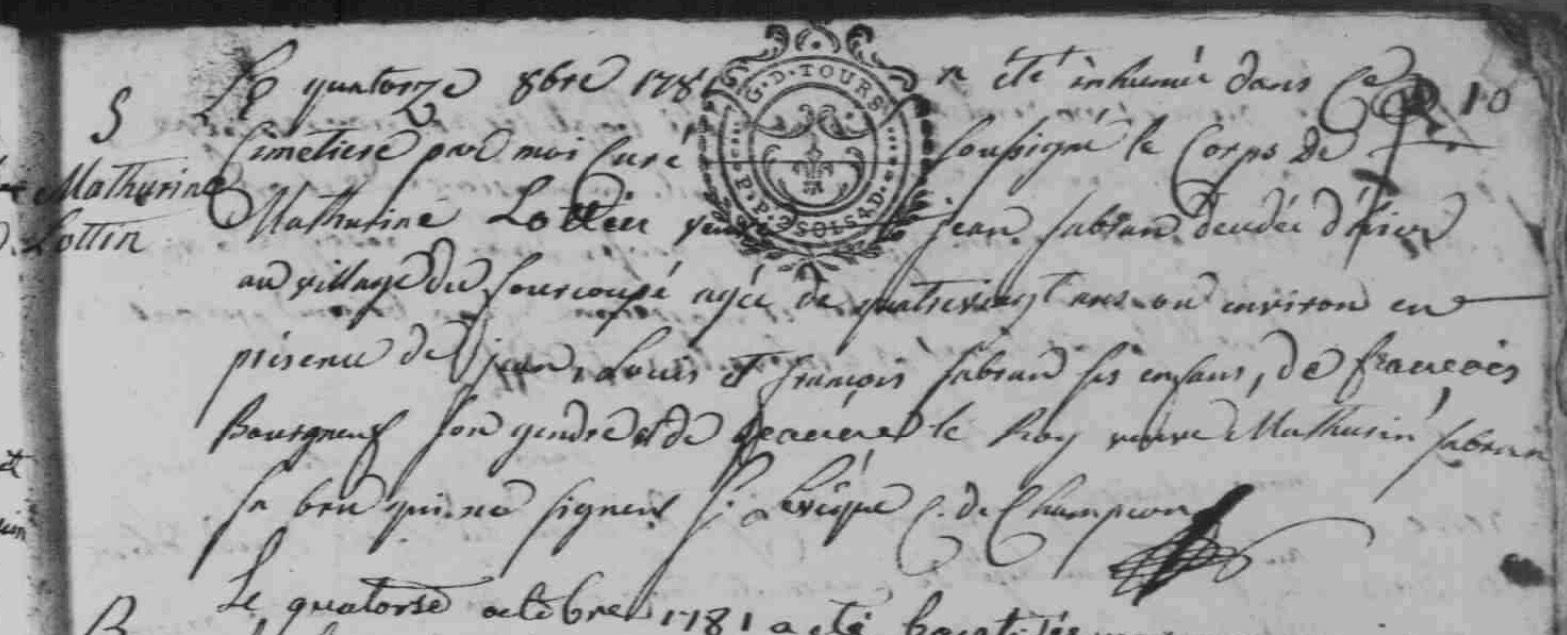 S
Mathurine
Lottin
10
G.D. TOURS
2 SOLS 4 D.
Le quatorze 8bre 1781 a été inhumée dans Le
Cimetiere par moi Curé soussigné le Corps de
Mathurine Lottin veuve de jean fabran decedée d'hier
au village du fourcoupé agée de quatrevingt ans ou environ en
présence de jean, Louis et françois fabran ses enfans, de françois
Bourgneuf son gendre et de le Roy veuve Mathurin fabran
sa bru qui ne signent Levêque C. de
Le quatorse octobre 1781 a été
B